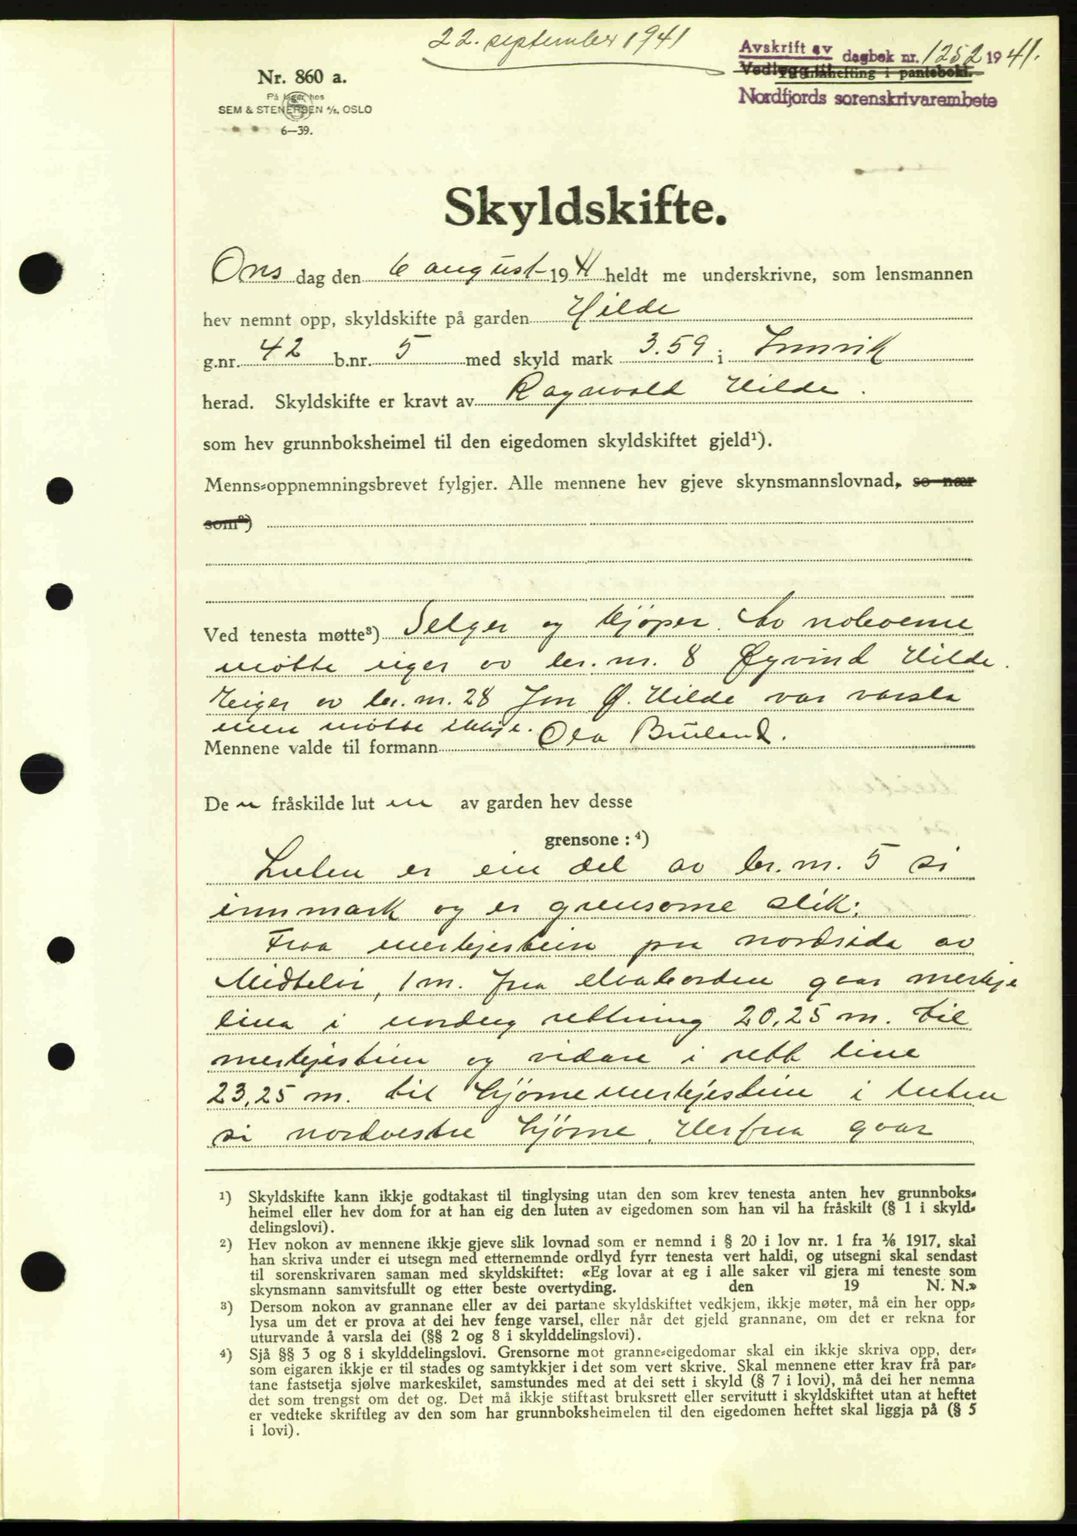 22. september 1941
Avskrift av dagbok nr. 1252 1941.
Vedlegg til hefting i pantebok.
Nordfjords sorenskrivarembete
Nr. 860 a.
På lager hos
SEM & STENERSEN A/S, OSLO
6—39.
Skyldskifte.
Ons dag den 6 august 1941 heldt me underskrivne, som lensmannen
hev nemnt opp, skyldskifte på garden Hilde
g.nr. 42 b.nr. 5 med skyld mark 3.59 i Innvik
herad. Skyldskifte er kravt av Ragnvald Hilde.
som hev grunnboksheimel til den eigedomen skyldskiftet gjeld¹).
Menns-oppnemningsbrevet fylgjer. Alle mennene hev gjeve skynsmannslovnad, so nær
som²)
Ved tenesta møtte³) Selger og kjöper. Av naboerne
møtte eiger av br. nr. 8 Øyvind Hilde.
Eiger av br. nr. 28 Jon Ø. Hilde var varsla
men møtte ikkje.
Mennene valde til formann Ola Bruland.
De n fråskilde lut en av garden hev desse
grensone : ⁴)
Luten er ein del av br. nr. 5 si
innmark og er grensorne slik:
Fraa merkjestein paa nordsida av
Midtelvi, 1 m. fraa elvaborden gaar merkje
lina i nordug rettning 20,25 m. til
merkjestein og vidare i rett line
23,25 m. til hjörnemerkjestein i luten
si nordvestre hjörne. Herfraa gaar
¹) Skyldskifte kann ikkje godtakast til tinglysing utan den som krev tenesta anten hev grunnboks-
heimel eller hev dom for at han eig den luten av eigedomen som han vil ha fråskilt (§ 1 i skyld-
delingslovi).
²) Hev nokon av mennene ikkje gjeve slik lovnad som er nemnd i § 20 i lov nr. 1 fra 1/6 1917, skal
han skriva under ei utsegn med etternemnde ordlyd fyrr tenesta vert haldi, og utsegni skal sendast
til sorenskrivaren saman med skyldskiftet: «Eg lovar at eg i alle saker vil gjera mi teneste som
skynsmann samvitsfullt og etter beste overtyding. den 19 N. N.»
³) Dersom nokon av grannane eller av dei partane skyldskiftet vedkjem, ikkje møter, må ein her opp-
lysa um det er prova at dei hev fenge varsel, eller når det gjeld grannane, om det er rekna for
uturvande å varsla dei (§§ 2 og 8 i skylddelingslovi).
⁴) Sjå §§ 3 og 8 i skylddelingslovi. Grensorne mot granne-eigedomar skal ein ikkje skriva opp, der-
som eigaren ikkje er til stades og samtykkjer i det som vert skrive. Skal mennene etter krav frå par-
tane fastsetja sjølve markeskilet, samstundes med at dei sett i skyld (§ 7 i lovi), må dei her nemna
det som trengst om det og. Det må ikkje stiftast bruksrett eller servitutt i skyldskiftet utan at heftet
er vedteke skriftleg av den som har grunnboksheimelen til den eigedomen heftet skal liggja på (§ 5
i lovi).